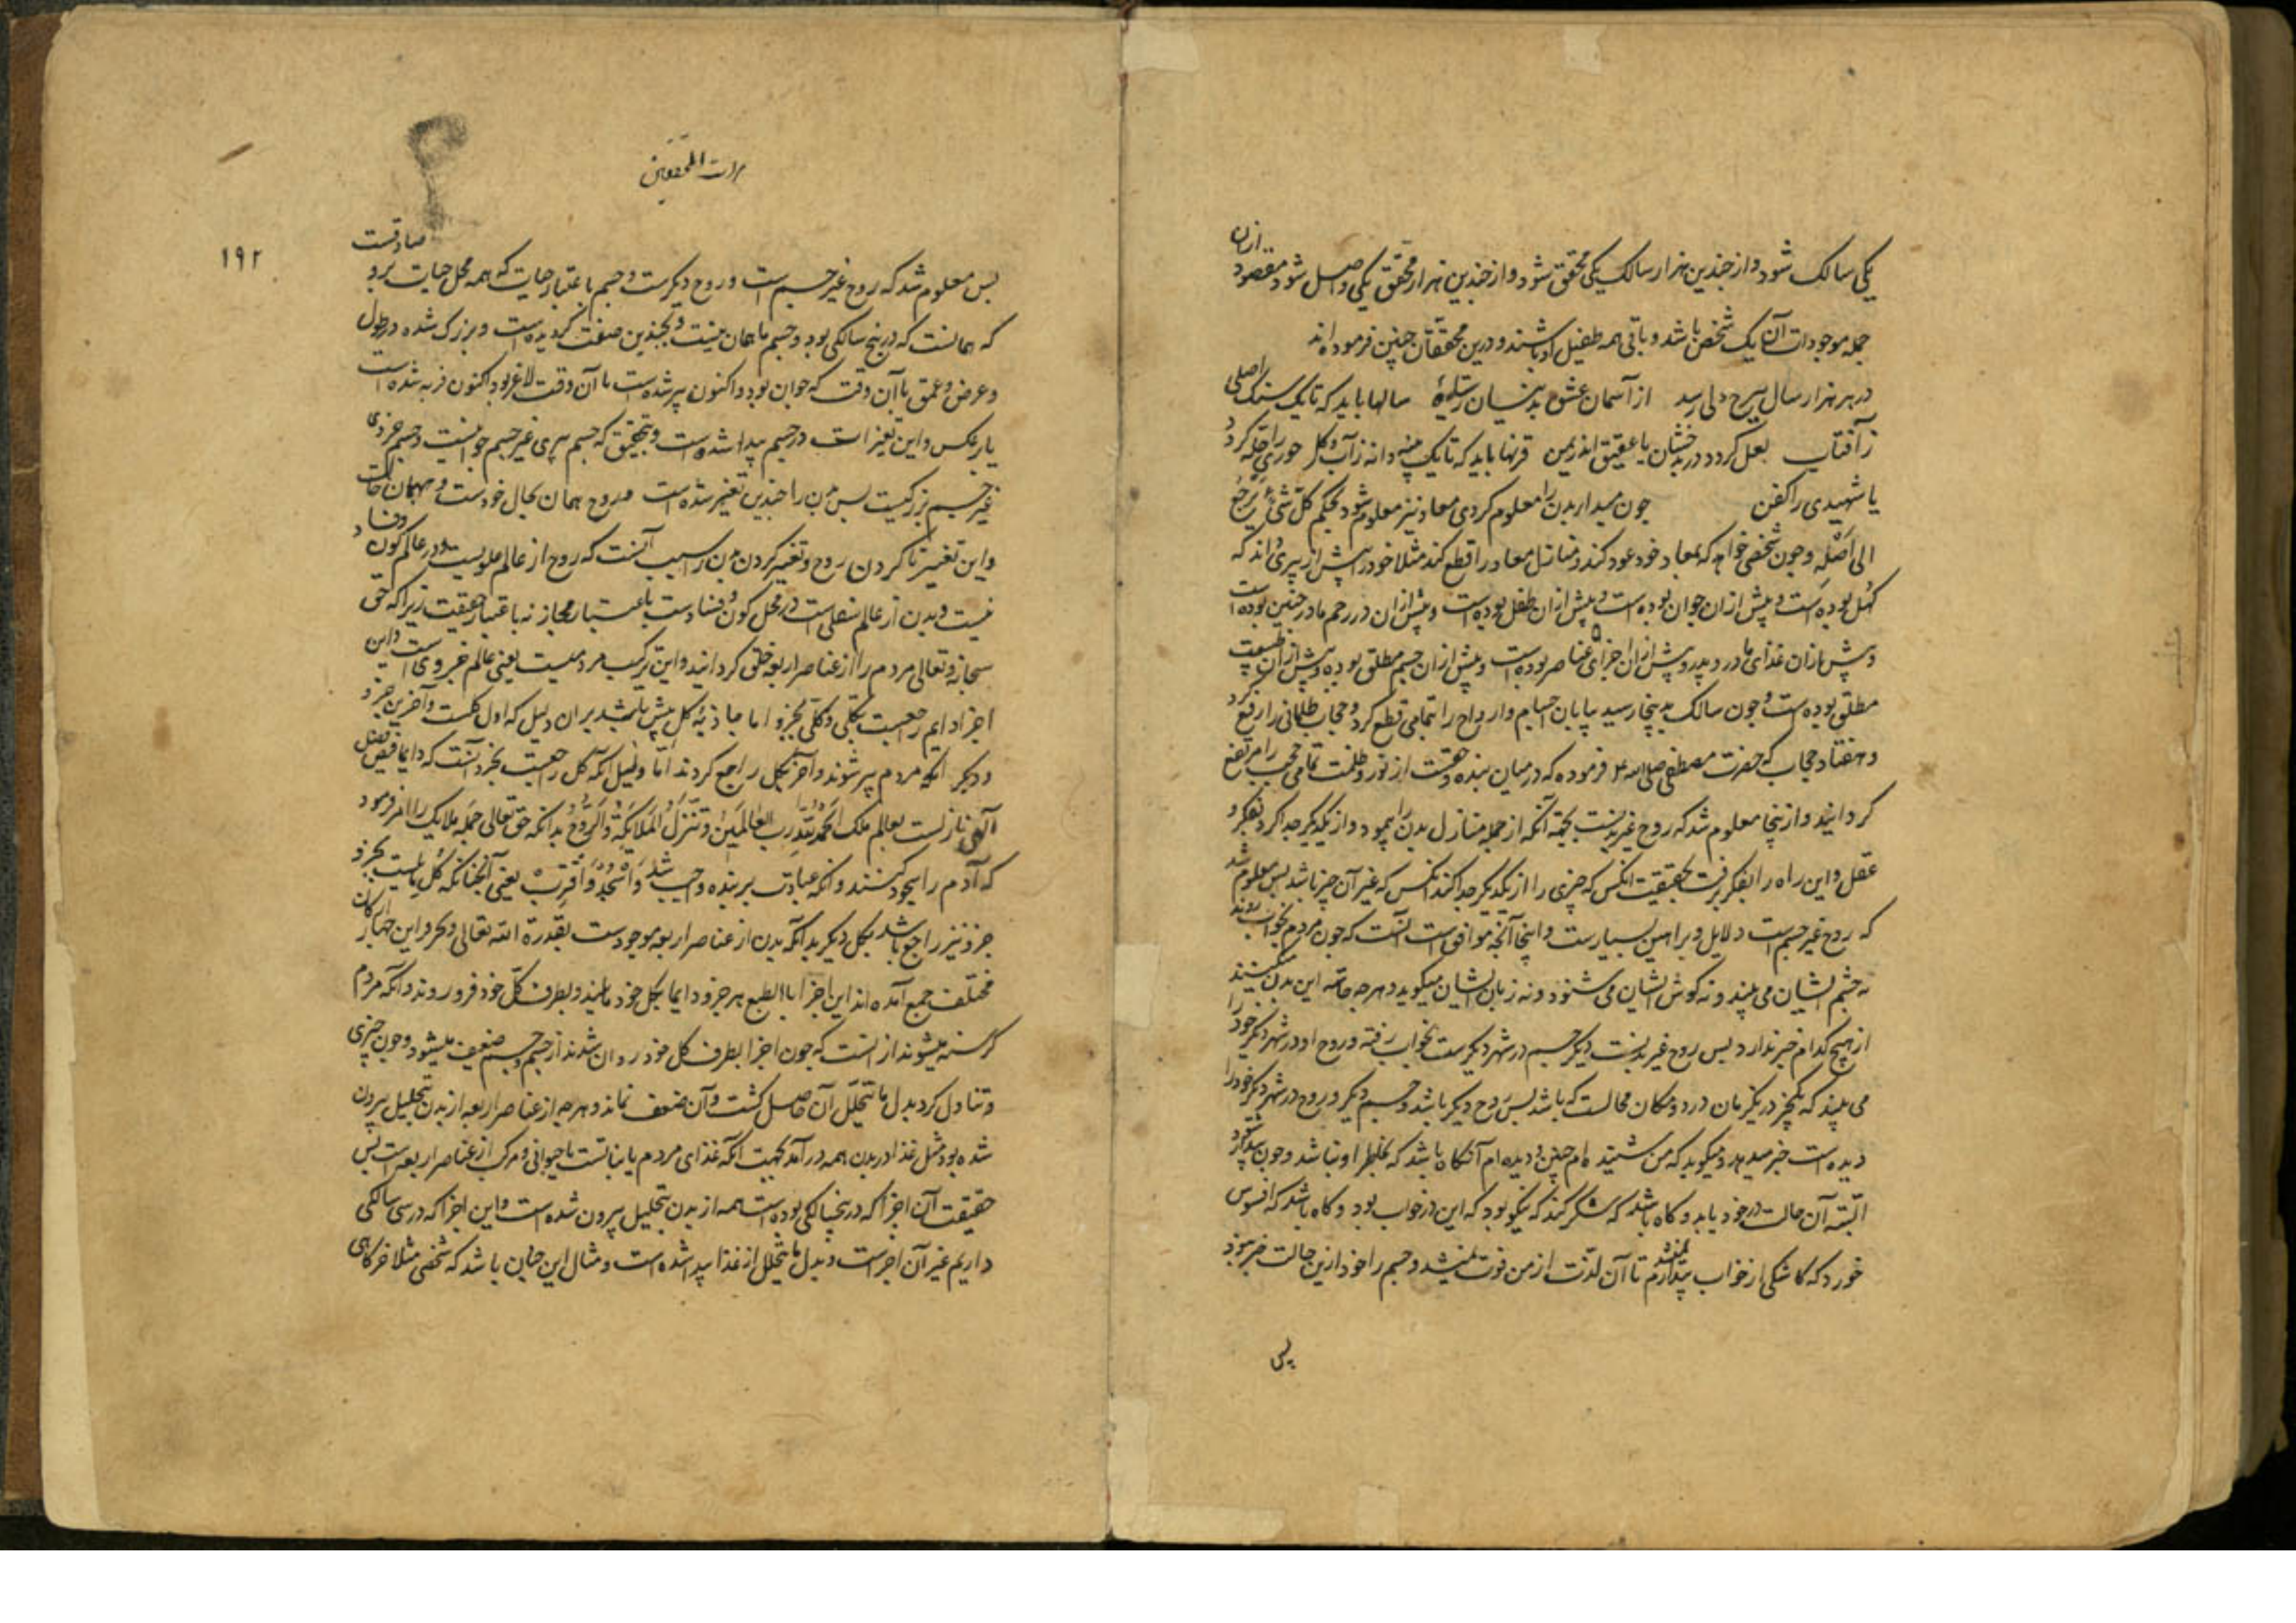 یکی سالک شود و از چندین هزار سالک یکی محقق شود و از چندین هزار محقق یکی واصل شود مقصود ازین
جمله موجودات آن یک شخص باشد و باقی همه طفیل او باشند و درین محققان چنین فرموده اند
در هر هزار سال ببرج دلی رسد از آسمان عشق بدینسان ستارهٔ سالها باید که تا یک سنک اصلی
ز آفتاب لعل کردد در بدخشان یا عقیق اندر یمن قرنها باید که تا یک پنبه دانه ز آب و کل حوری را حله کردد
یا شهیدی را کفن چون مبدا بدن را معلوم کردی معاد نیز معلوم شود بحکم کل شیء یرجع
الی اصله و چون شخصی خواهد که بمعاد خود عود کند و منازل معاد را قطع کند مثلا خود را پیش از پیری داند که
کهل بوده است و پیش ازان جوان بوده است و پیش ازان طفل بوده است و پیش ازان در رحم مادر جنین بوده است
و پیش ازان غذای مادر و پدر و پیش ازان اجزای عناصر بوده است و پیش ازان جسم مطلق بوده و پیش ازان طبیعت
مطلق بوده است و چون سالک بدینجا رسید بپایان اجسام و ارواح را بتمامی قطع کرد و حجاب ظلمانی را رفع کرد
و هفتاد حجاب که حضرت مصطفی صلی الله علیه فرموده که در میان بنده و حقست از نور و ظلمت تمامی حجب را مرتفع
کردانید و ازینجا معلوم شد که روح غیر بدنست بجهة آنکه از جمله منازل بدن را پیمود و از یکدیکر جدا کرد بفکر و
عقل و این راه را بفکر برفت بحقیقت انکس که چیزی را از یکدیکر جدا کند انکس که غیر آن چیز باشد پس معلوم شد
که روح غیر جسم است دلایل و براهین بسیارست و اینجا آنچه موافق است آنست که چون مردم بخواب روند
نه چشم ایشان می بیند و نه کوش ایشان می شنود و نه زبان ایشان میکوید و هرچه این بدن
از هیچ کدام خبر ندارد پس روح غیر بدنست دیکر جسم در شهر دیکرست بخواب رفته و روح او در شهر دیکر خود را
می بیند که یکچیز در یکزمان در دو مکان محالست که باشد پس روح دیکر باشد و جسم دیکر و روح در شهر دیکر خود را
دیده است خبر میدهد و میکوید که من شنیده ام چنین و دیده ام آنکاه باشد که بخاطر او نباشد و چون بیدار شود
البته آن حالت در خود یابد و کاه باشد که شکر کند که نیکو بود که این در خواب بود و کاه باشد که افسوس
خورد که کاشکی از خواب بیدار نمیشدم تا آن لذت از من فوت نمیشد و جسم را خود ازین حالت خبر نبود
پس
مرات المحققین
۱۹۲
پس معلوم شد که روح غیر جسم است و روح دیکرست و جسم باعتبار حیات که همه محل حیات برو صادقست
که همانست که در پنج سالکی بود و جسم ما همان نیست و بچندین صفت کردیده است و بزرک شده در طول
و عرض و عمق یا آن وقت که جوان بود و اکنون پیر شده است یا آن وقت لاغر بود و اکنون فربه شده است
یا برعکس و این تغیرات در جسم پیدا شده است و بتحقیق که جسم پیری غیر جسم جوانیست و جسم خردی
غیر جسم بزرکیست پس بدن را چندین تغیر شده است و روح همان بحال خودست
و این تغییر ناکردن روح و تغییر کردن بدن را سبب آنست که روح از عالم علویست و در عالم کون و فساد
نیست و بدن از عالم سفلی است در محل کون و فسادست باعتبار مجاز نه باعتبار حقیقت زیرا که حق
سبحانه و تعالی مردم را از عناصر اربعه خلق کردانید و این ترکیب مردمیست یعنی عالم جزوی است و این
اجزا دایم راجعیست بکلی و کلی بجزو اما جاذبهٔ کل پیش باشد بران دلیل که اول کلست و آخرین جزو
و دیکر انکه مردم پیر شوند و آخر بکل راجع کردند اما دلیل آنکه کل راجعست بجزو آنست که دایما فیض فضل
الهی نازلست بعالم ملک الحمد لله رب العالمین و تنزل الملائکة والروح بدانکه حق تعالی جمله ملایک را امر فرمود
که آدم را سجود کنند و انکه عبادت بر بنده واجب شد واسجد واقترب یعنی آنچنانکه کل مایلیست بجزو
جزو نیز راجع باشد بکل دیکر بدانکه بدن از عناصر اربعه موجودست بقدرة الله تعالی و این چهار ارکان
مختلف جمع آمده اند این اجزا با بالطبع هر جزو دایما بکل خود مایلند و بطرف کل خود فرو روند و انکه مردم
کرسنه میشوند از انست که چون اجزا بطرف کل خود روان شدند از جسم و جسم ضعیف میشود و چون چیزی
و تناول کرد بدل ما یتحلل آن حاصل کشت و آن ضعف نماند و هرچه از عناصر اربعه از بدن بتحلیل بیرون
شده بود مثل غذا در بدن همه در آمد بجهت انکه غذای مردم یا نباتست یا حیوانی و مرکب از عناصر اربعه است پس
حقیقت آن اجزا که در پنجسالکی بوده است همه از بدن بتحلیل بیرون شده است و این اجزا که در سی سالکی
داریم غیر آن اجزاست و بدل ما یتحلل از غذا پیدا شده است و مثال این چنان باشد که شخصی مثلا خرکاهی